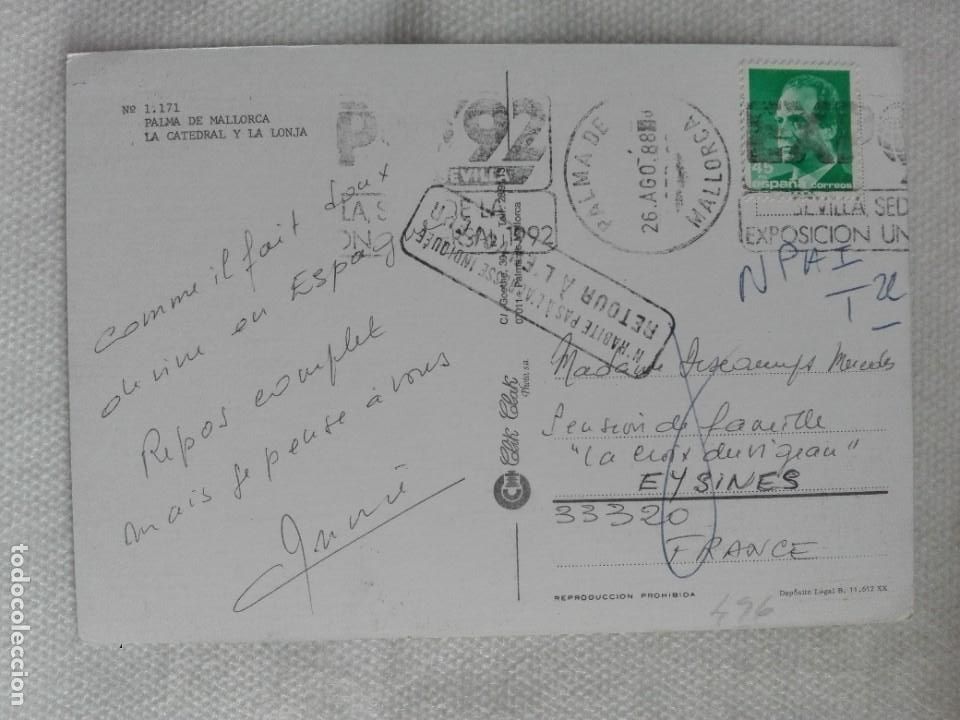 Nº 1.171
PALMA DE MALLORCA
LA CATEDRAL Y LA LONJA
comme il fait doux
de vivre en Espagne
Repos complet
mais je pense à vous
'92
SEVILLA
1992
PALMA DE MALLORCA
26.AGO.88
45
españa correos
SEVILLA, SED
EXPOSICION UN
N'HABITE PAS À L'ADRESSE INDIQUÉE
RETOUR À L'
NPAI
Madame Descamps
Pension de famille
"La croix du vigean"
EYSINES
33320
FRANCE
07011 - Palma de Mallorca
Clak Clak
Photo, s.a.
REPRODUCCION PROHIBIDA
Depósito Legal B. 11.612 XX
496
todocoleccion